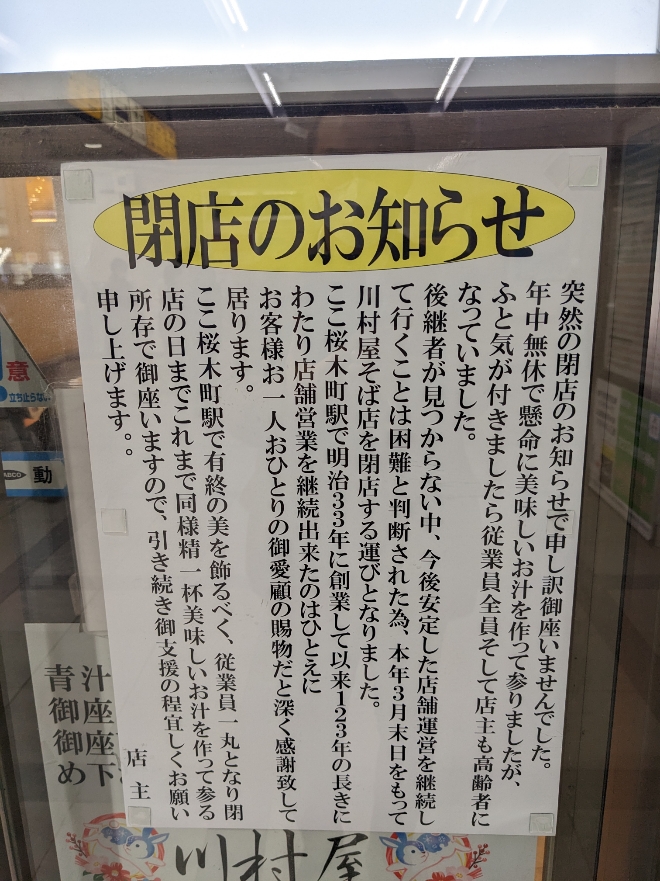 閉店のお知らせ
突然の閉店のお知らせで申し訳御座いませんでした。
年中無休で懸命に美味しいお汁を作って参りましたが、
ふと気が付きましたら従業員全員そして店主も高齢者に
なっていました。
後継者が見つからない中、今後安定した店舗運営を継続し
て行くことは困難と判断された為、本年3月末日をもって
川村屋そば店を閉店する運びとなりました。
ここ桜木町駅で明治33年に創業して以来123年の長きに
わたり店舗営業を継続出来たのはひとえに
お客様お一人おひとりの御愛顧の賜物だと深く感謝致して
居ります。
ここ桜木町駅で有終の美を飾るべく、従業員一丸となり閉
店の日までこれまで同様精一杯美味しいお汁を作って参る
所存で御座いますので、引き続き御支援の程宜しくお願い
申し上げます。。
店主
意
立ち止らない
動
青汁
御座
御座
め下
川村屋